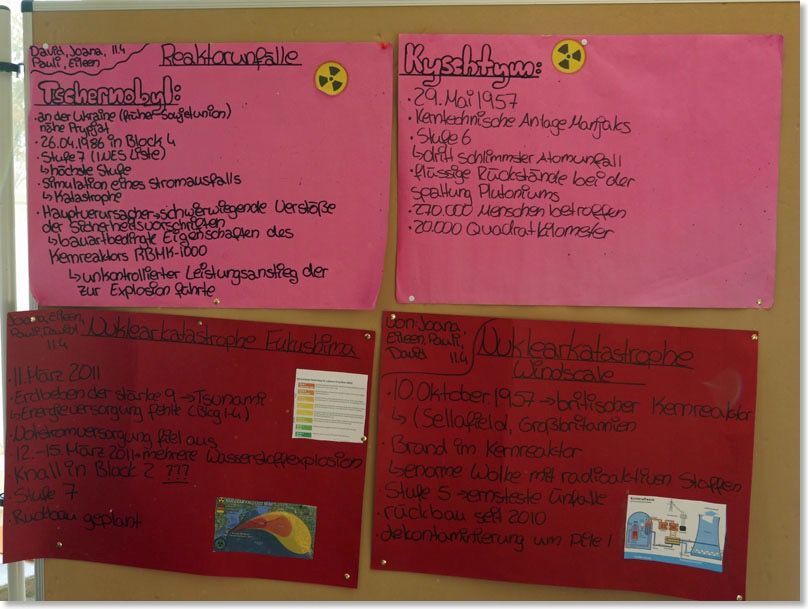 David, Joana, 11.4
Pauli, Eileen
Reaktorunfälle
Tschernobyl:
· an der Ukraine (früher-Sovjetunion)
nähe Prypjat
· 26.04.1986 in Block 4
· Stufe 7 (INES Liste)
↳ höchste Stufe
· Simulation eines stromausfalls
↳ Katastrophe
· Hauptverursacher→schwerwiegende Verstöße
der Sicherheitsvorschriften
↳ bauartbedingte Eigenschaften des
Kernreaktors RBMK-1000
↳ unkontrollierter Leistungsanstieg der
zur Explosion führte
Kyschtym:
· 29. Mai 1957
· Kerntechnische Anlage Marjaks
· Stufe 6
↳ dritt schlimmster Atomunfall
· flüssige Rückstände bei der
spaltung Plutoniums
· 270.000 Menschen betroffen
· 20.000 Quadratkilometer
Joana, Eileen,
Pauli, David
11.4
Nuklearkatastrophe Fukushima
· 11. März 2011
· Erdbeben der stärke 9 → Tsunami
↳ Energieversorgung fehlte
· Notstromversorgung fiel aus
12.-15. März 2011→mehrere Wasserstoffexplosion
Knall in Block 2 ???
Stufe 7
Rückbau geplant
von: Joana,
Eileen, Pauli,
David 11.4
Nuklearkatastrophe
Windscale
· 10. Oktober 1957 → britischer Kernreaktor
↳ (Sellafield, Großbritannien
· Brand im Kernreaktor
↳ enorme Wolke mit radioaktiven Stoffen
· Stufe 5 → ernsteste Unfälle
· rückbau seit 2010
· dekontamitierung um Pile 1